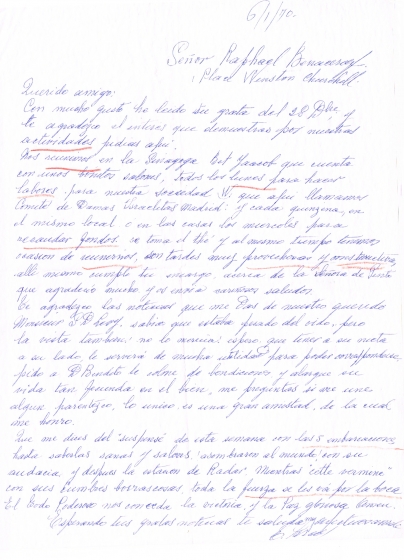 6/1/70.
Señor Raphael Benazeraf
Place Winston Churchill.
Querido amigo:
Con mucho gusto he leido su grata del 28 Dbre, y
te agradezco el interes que demuestras por nuestras
actividades judias aqui.
Nos reunimos en la Sinagoga Bet Yaacob que cuenta
con unos lindos salones, todos los lunes para hacer
labores para nuestra sociedad que aqui llamamos
Comité de Damas Israelitas Madrid y cada quinzena, en
el mismo local o en las casas los miercoles para
recaudar fondos. se toma el thé y al mismo tiempo tenemos
ocasion de reunirnos, son tardes muy provechosas y constructivas,
alli mismo cumpli tu encargo acerca de la Señora de Pinto
que agradecio mucho y os envia cariñosos saludos.
Te agradezco las noticias que me das de nuestro querido
Monsieur Levy, sabia que estaba pesado del oido, pero
la vista tambien: no lo merecia: espero que tener a su nieta
a su lado, le servirá de mucha utilidad para poder corresponderse,
pido a D. Bendito le colme de bendiciones y alargue su
vida tan fecunda en el bien, me preguntas si me une
algun parentesco, lo unico es una gran amistad, de la cual
me honro.
Que me dices del "suspense" de esta semana con las 5 embarcaciones
hasta saberlas sanas y salvas, asombraron al mundo, con su
audacia y despues la estacion de Radar. Mientras "cette vermine"
con sus cumbres borrascosas, toda la fuerza se les va por la boca.
El Todo Poderoso nos conceda la victoria y la Paz gloriosa Amen.
Esperando tus gratas noticias te saluda muy afectuosamente